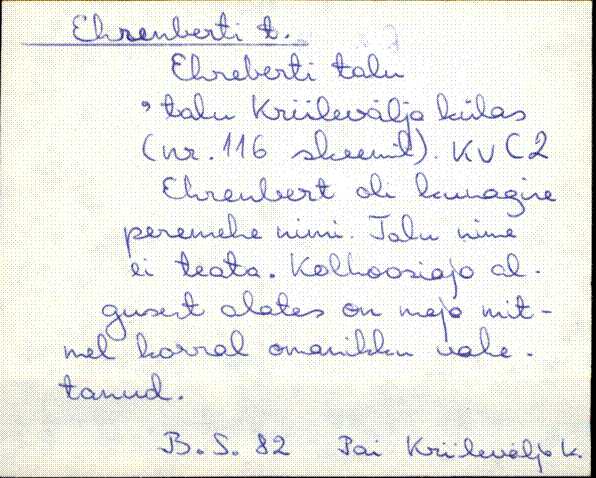 Ehrenberti t.
Ehreberti talu
, talu Kriilevälja külas
(nr. 116 skeemil). KV C2
Ehrenbert oli kunagise
peremehe nimi. Talu nime
ei teata. Kolhoosiaja al-
gusest alates on maja mit-
mel korral omanikku vahe-
tanud.
B. S. 82 Pai Kriilevälja k.